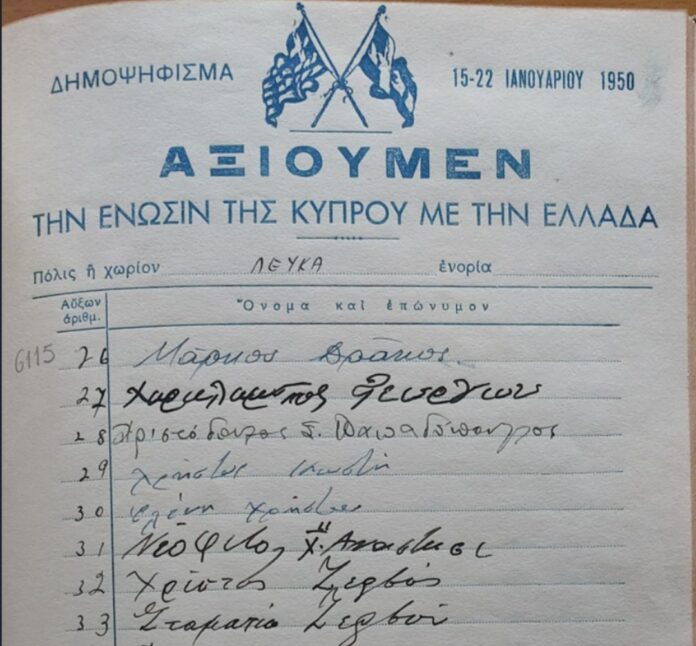 ΔΗΜΟΨΗΦΙΣΜΑ 15-22 ΙΑΝΟΥΑΡΙΟΥ 1950
ΑΞΙΟΥΜΕΝ
ΤΗΝ ΕΝΩΣΙΝ ΤΗΣ ΚΥΠΡΟΥ ΜΕ ΤΗΝ ΕΛΛΑΔΑ
Πόλις ἢ χωρίον ΛΕΥΚΑ ἐνορία
Αὔξων ἀριθμ. Ὄνομα καὶ ἐπώνυμον
6115 26 Μάρκος Δράκος
27 Χαράλαμπος Γεωργίου
28 Αριστόδουλος Παπαδόπουλος
29 Χρήστος Κωστή
30 Ελένη Χρήστου
31 Νεόφυτος Χ" Αναστάση
32 Χρίστος Ζερβός
33 Σταματία Ζερβού